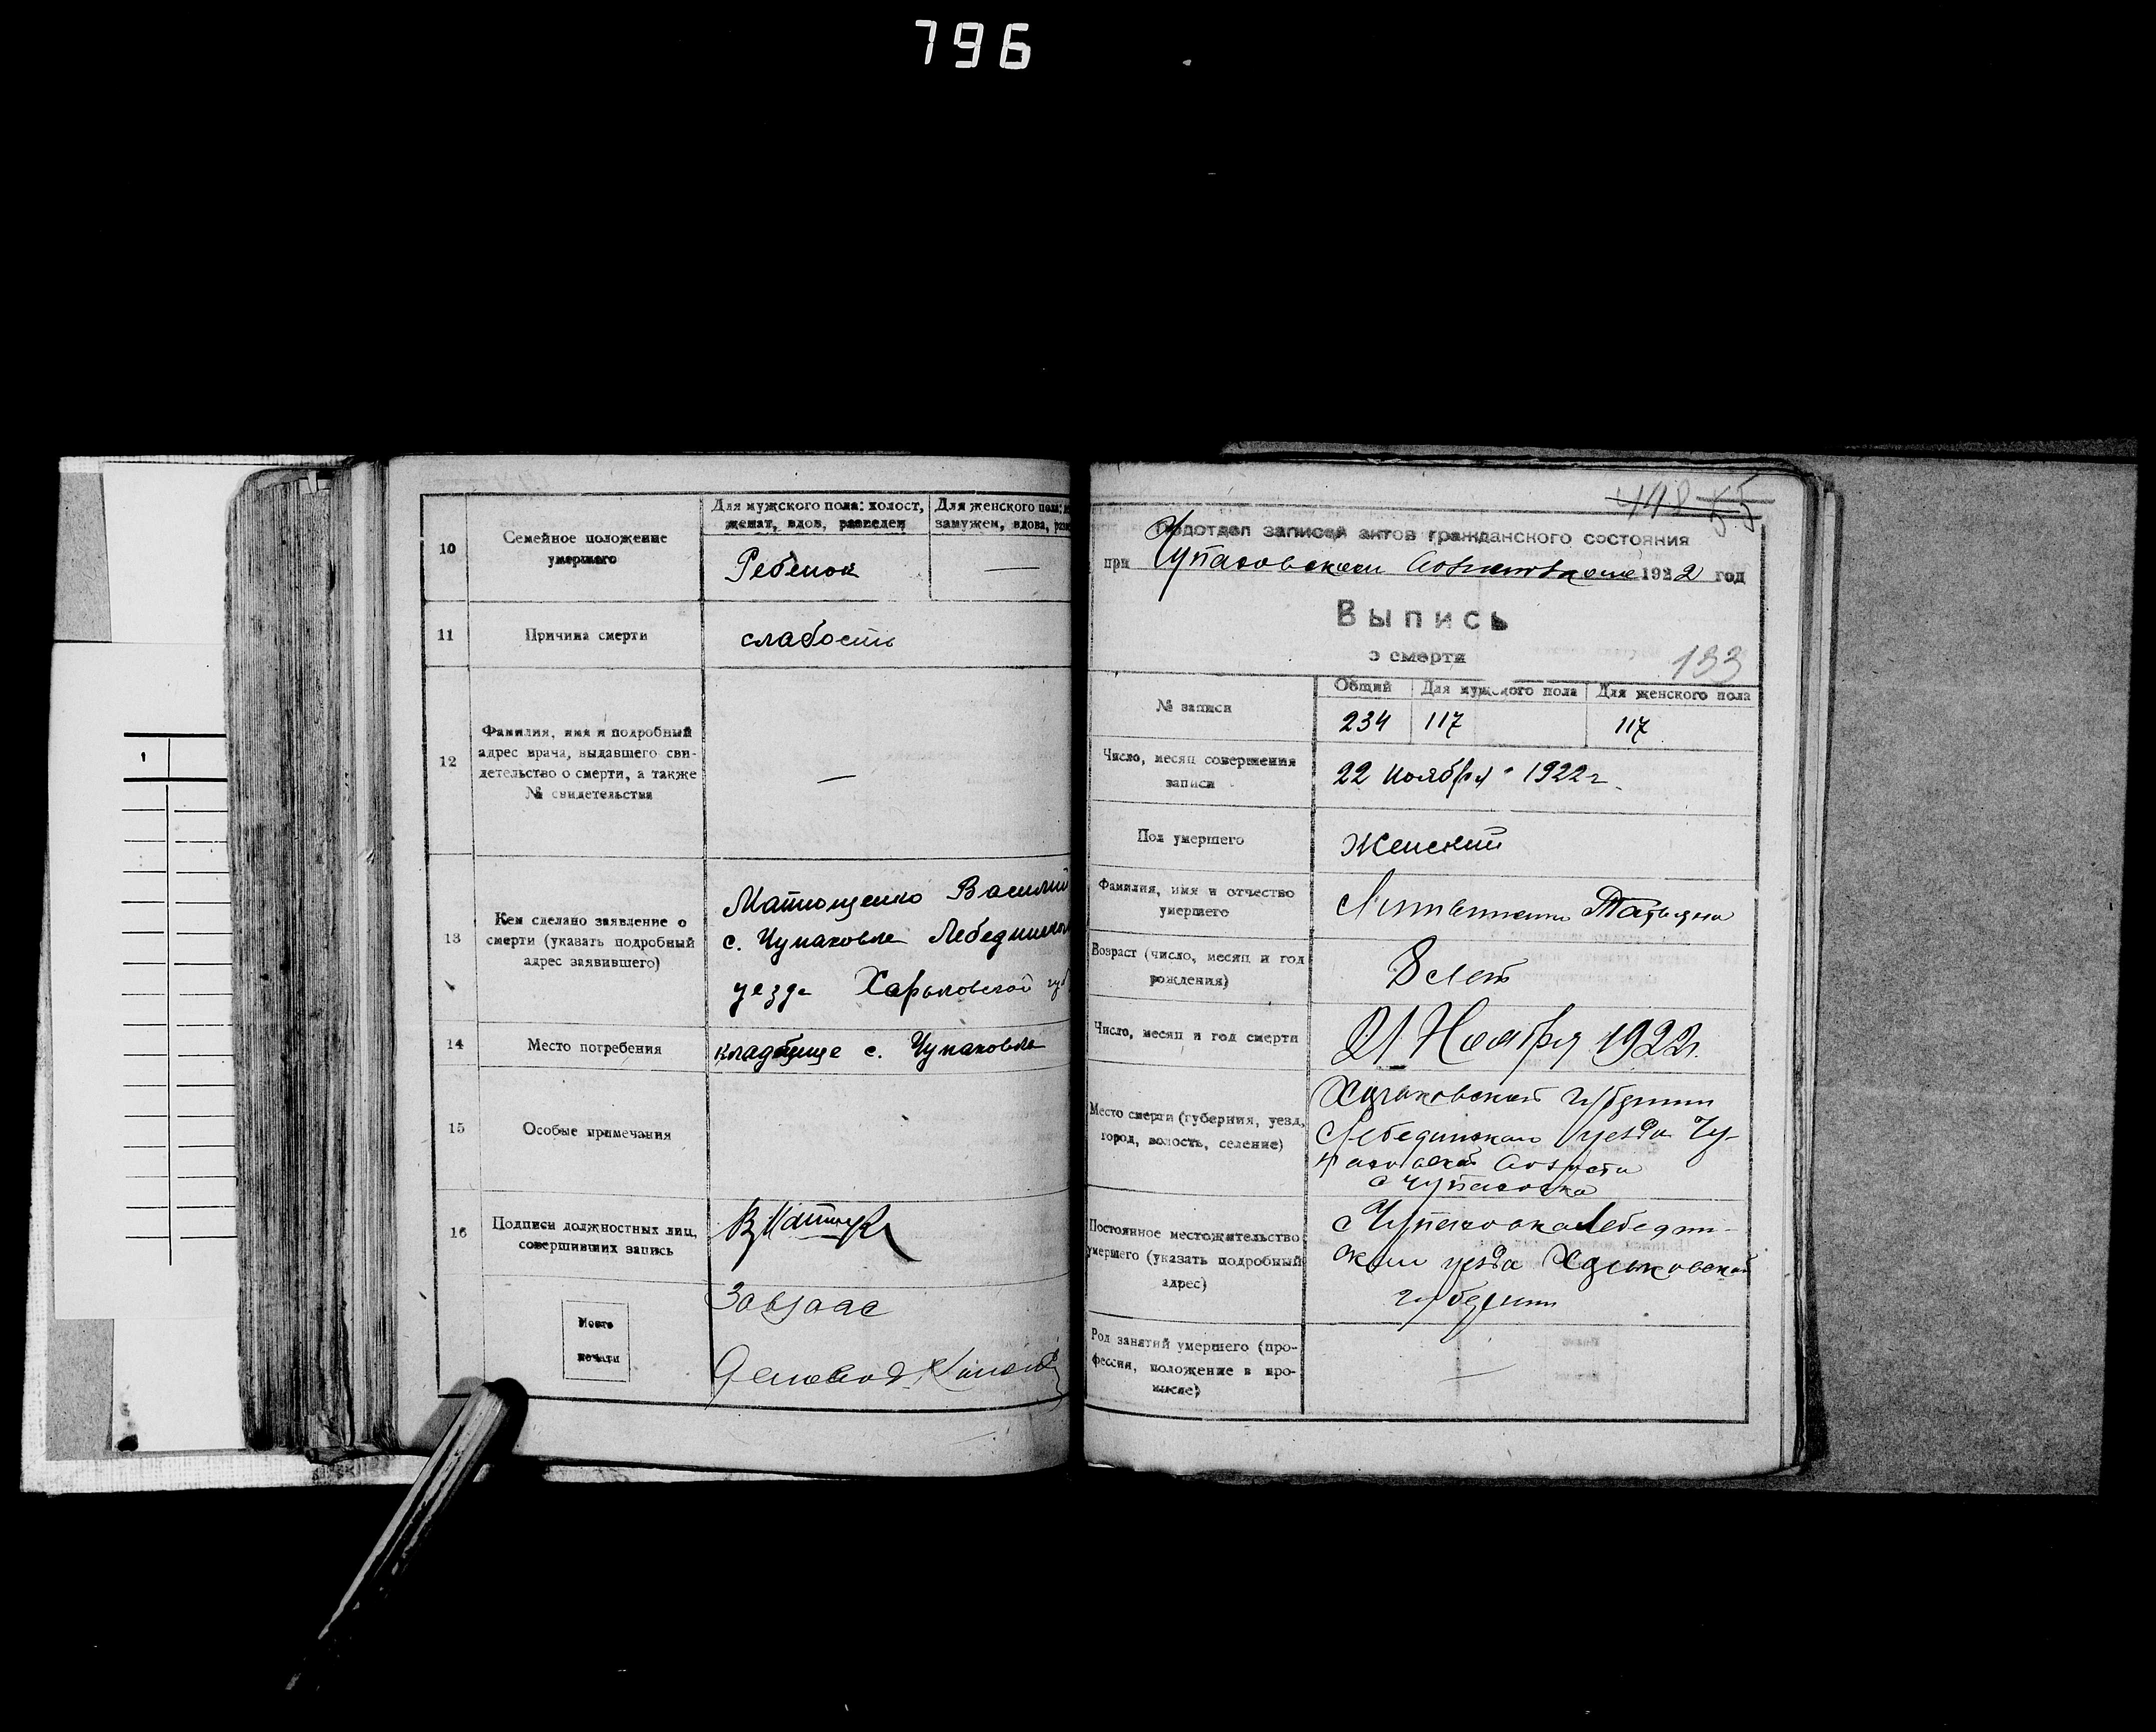 796
10
Семейное положение
умершего
Для мужского пола: холост,
женат, вдов, разведен
Для женского пола:
замужем, вдова,
Ребенок
—
11
Причина смерти
слабость
12
Фамилия, имя и подробный
адрес врача, выдавшего сви-
детельство о смерти, а также
№ свидетельства
—
13
Кем сделано заявление о
смерти (указать подробный
адрес заявившего)
Матющенко Василий
с. Чупаховке Лебединского
уезда Харьковской губ
14
Место погребения
кладбище с. Чупаховка
15
Особые примечания
16
Подписи должностных лиц,
совершивших запись
Завзагс
Место
печати
448 55
Подотдел записей актов гражданского состояния
при Чупаховском 1922 год
Выпись
о смерти
133
№ записи
Общий
Для мужского пола
Для женского пола
234
117
117
Число, месяц совершения
записи
22 ноября 1922 г.
Пол умершего
Женский
Фамилия, имя и отчество
умершего
Татьяна
Возраст (число, месяц и год
рождения)
8 лет
Число, месяц и год смерти
21 Ноября 1922 г.
Место смерти (губерния, уезд,
город, волость, селение)
Харьковской губернии
Лебединского уезда Чу-
паховской волости
с Чупаховка
Постоянное местожительство
умершего (указать подробный
адрес)
с Чупаховка Лебедин-
ского уезда Харьковской
губернии
Род занятий умершего (про-
фессия, положение в про-
мысле)
—